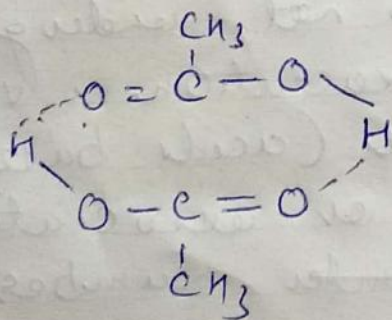 CH3
O = C — O
H H
O — C = O
CH3